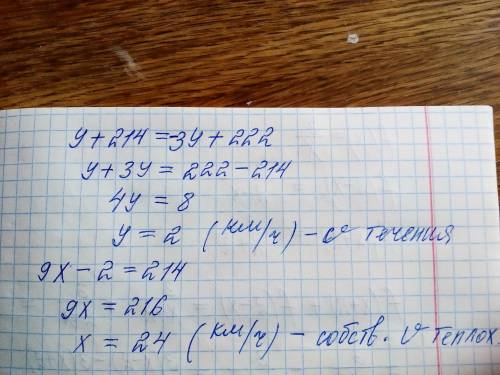 y + 214 = -3y + 222
y + 3y = 222 - 214
4y = 8
y = 2 (км/ч) - v течения
9x - 2 = 214
9x = 216
x = 24 (км/ч) - собств. v теплох.